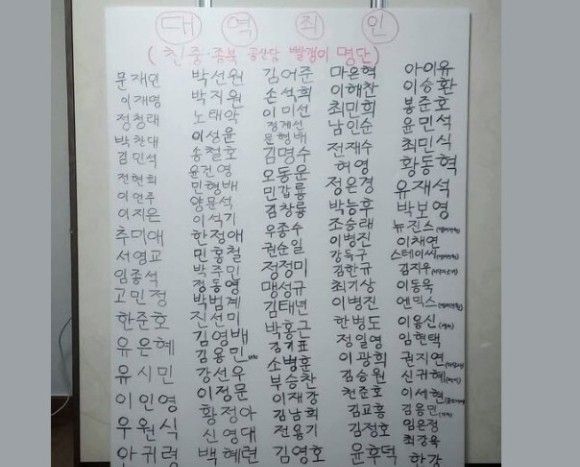 대 역 죄 인
( 친중 종북 공산당 빨갱이 명단 )
문재인
이재명
정청래
박찬대
김민석
전현희
이언주
이지은
추미애
서영교
임종석
고민정
한준호
유은혜
유시민
이인영
우원식
안귀령
박선원
박지원
노태악
이성윤
송철호
윤건영
민형배
양문석
이석기
한정애
민홍철
박주민
정동영
박범계
진선미
김영배
김용민
강선우
이정문
황정아
신영대
백혜련
김어준
손석희
이미선
정계선
문형배
김명수
오동운
민갑룡
김창룡
우종수
권순일
정정미
맹성규
김태년
박홍근
김기표
소병훈
부승찬
이재강
김남희
전용기
김영호
마은혁
이해찬
최민희
남인순
전재수
허영
정은경
박능후
조승래
이병진
강득구
김한규
최기상
이병진
한병도
정일영
이광희
김승원
천준호
김교흥
김정호
윤후덕
아이유
이승환
봉준호
윤민석
최민식
황동혁
유재석
박보영
뉴진스
이채연
스테이씨
김지우
이동욱
엔믹스
이용신
임현택
권지연
신귀혜
이세현
김용민
임은정
최강욱
한강